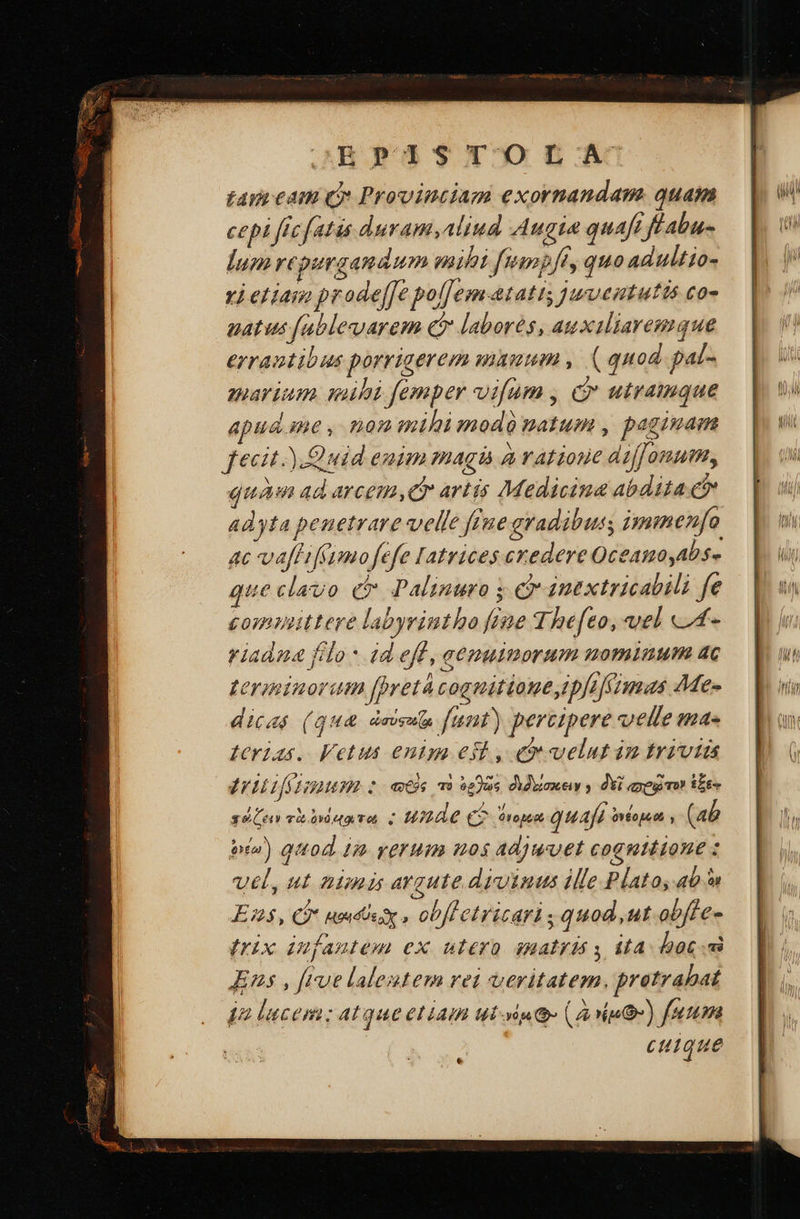 EPISTOLA
tam eam & Provinciam exornandam quam
cepi sic satis duram, aliud Augiæ quasi stabu-
lum repurgandum mihi sumpsi, quo adultio-
ri etiam prodesse possem ætati; juventutis co-
natus sublevarem & labores, auxiliaremque
errantibus porrigerem manum, (quod pal-
marium mihi semper visum, & utramque
apud me, non mihi modò natum, paginam
fecit.) Quid enim magis à ratione dissonum,
quàm ad arcem, & artis Medicinæ abdita &
adyta penetrare velle sine gradibus; immenso
ac vastissimo sese Iatrices credere Oceano, abs-
que clavo & Palinuro; & inextricabili se
committere labyrintho sine Theseo, vel A-
riadnæ filo: id est, genuinorum nominum ac
terminorum spretâ cognitione, ipsissimas Me-
dicas (quæ sunt) percipere velle ma-
terias. Vetus enim est, & velut in triviis
tritissimum: πρὸς τὸ ὀρθῶς διδάσκειν, δεῖ πρῶτον ἐξε-
τάζειν τὰ ὀνόματα: unde & ὄνομα quasi ὀνέομα, (ab
ὀνέω) quod in rerum nos adjuvet cognitione:
vel, ut nimis argute divinus ille Plato, ab ὂν
Ens, & , obstetricari; quod, ut obste-
trix infantem ex utero matris; ita hoc τὸ
Ens, sive lalentem rei veritatem, protrahat
in lucem: atque etiam ut (à ) suum
cuique